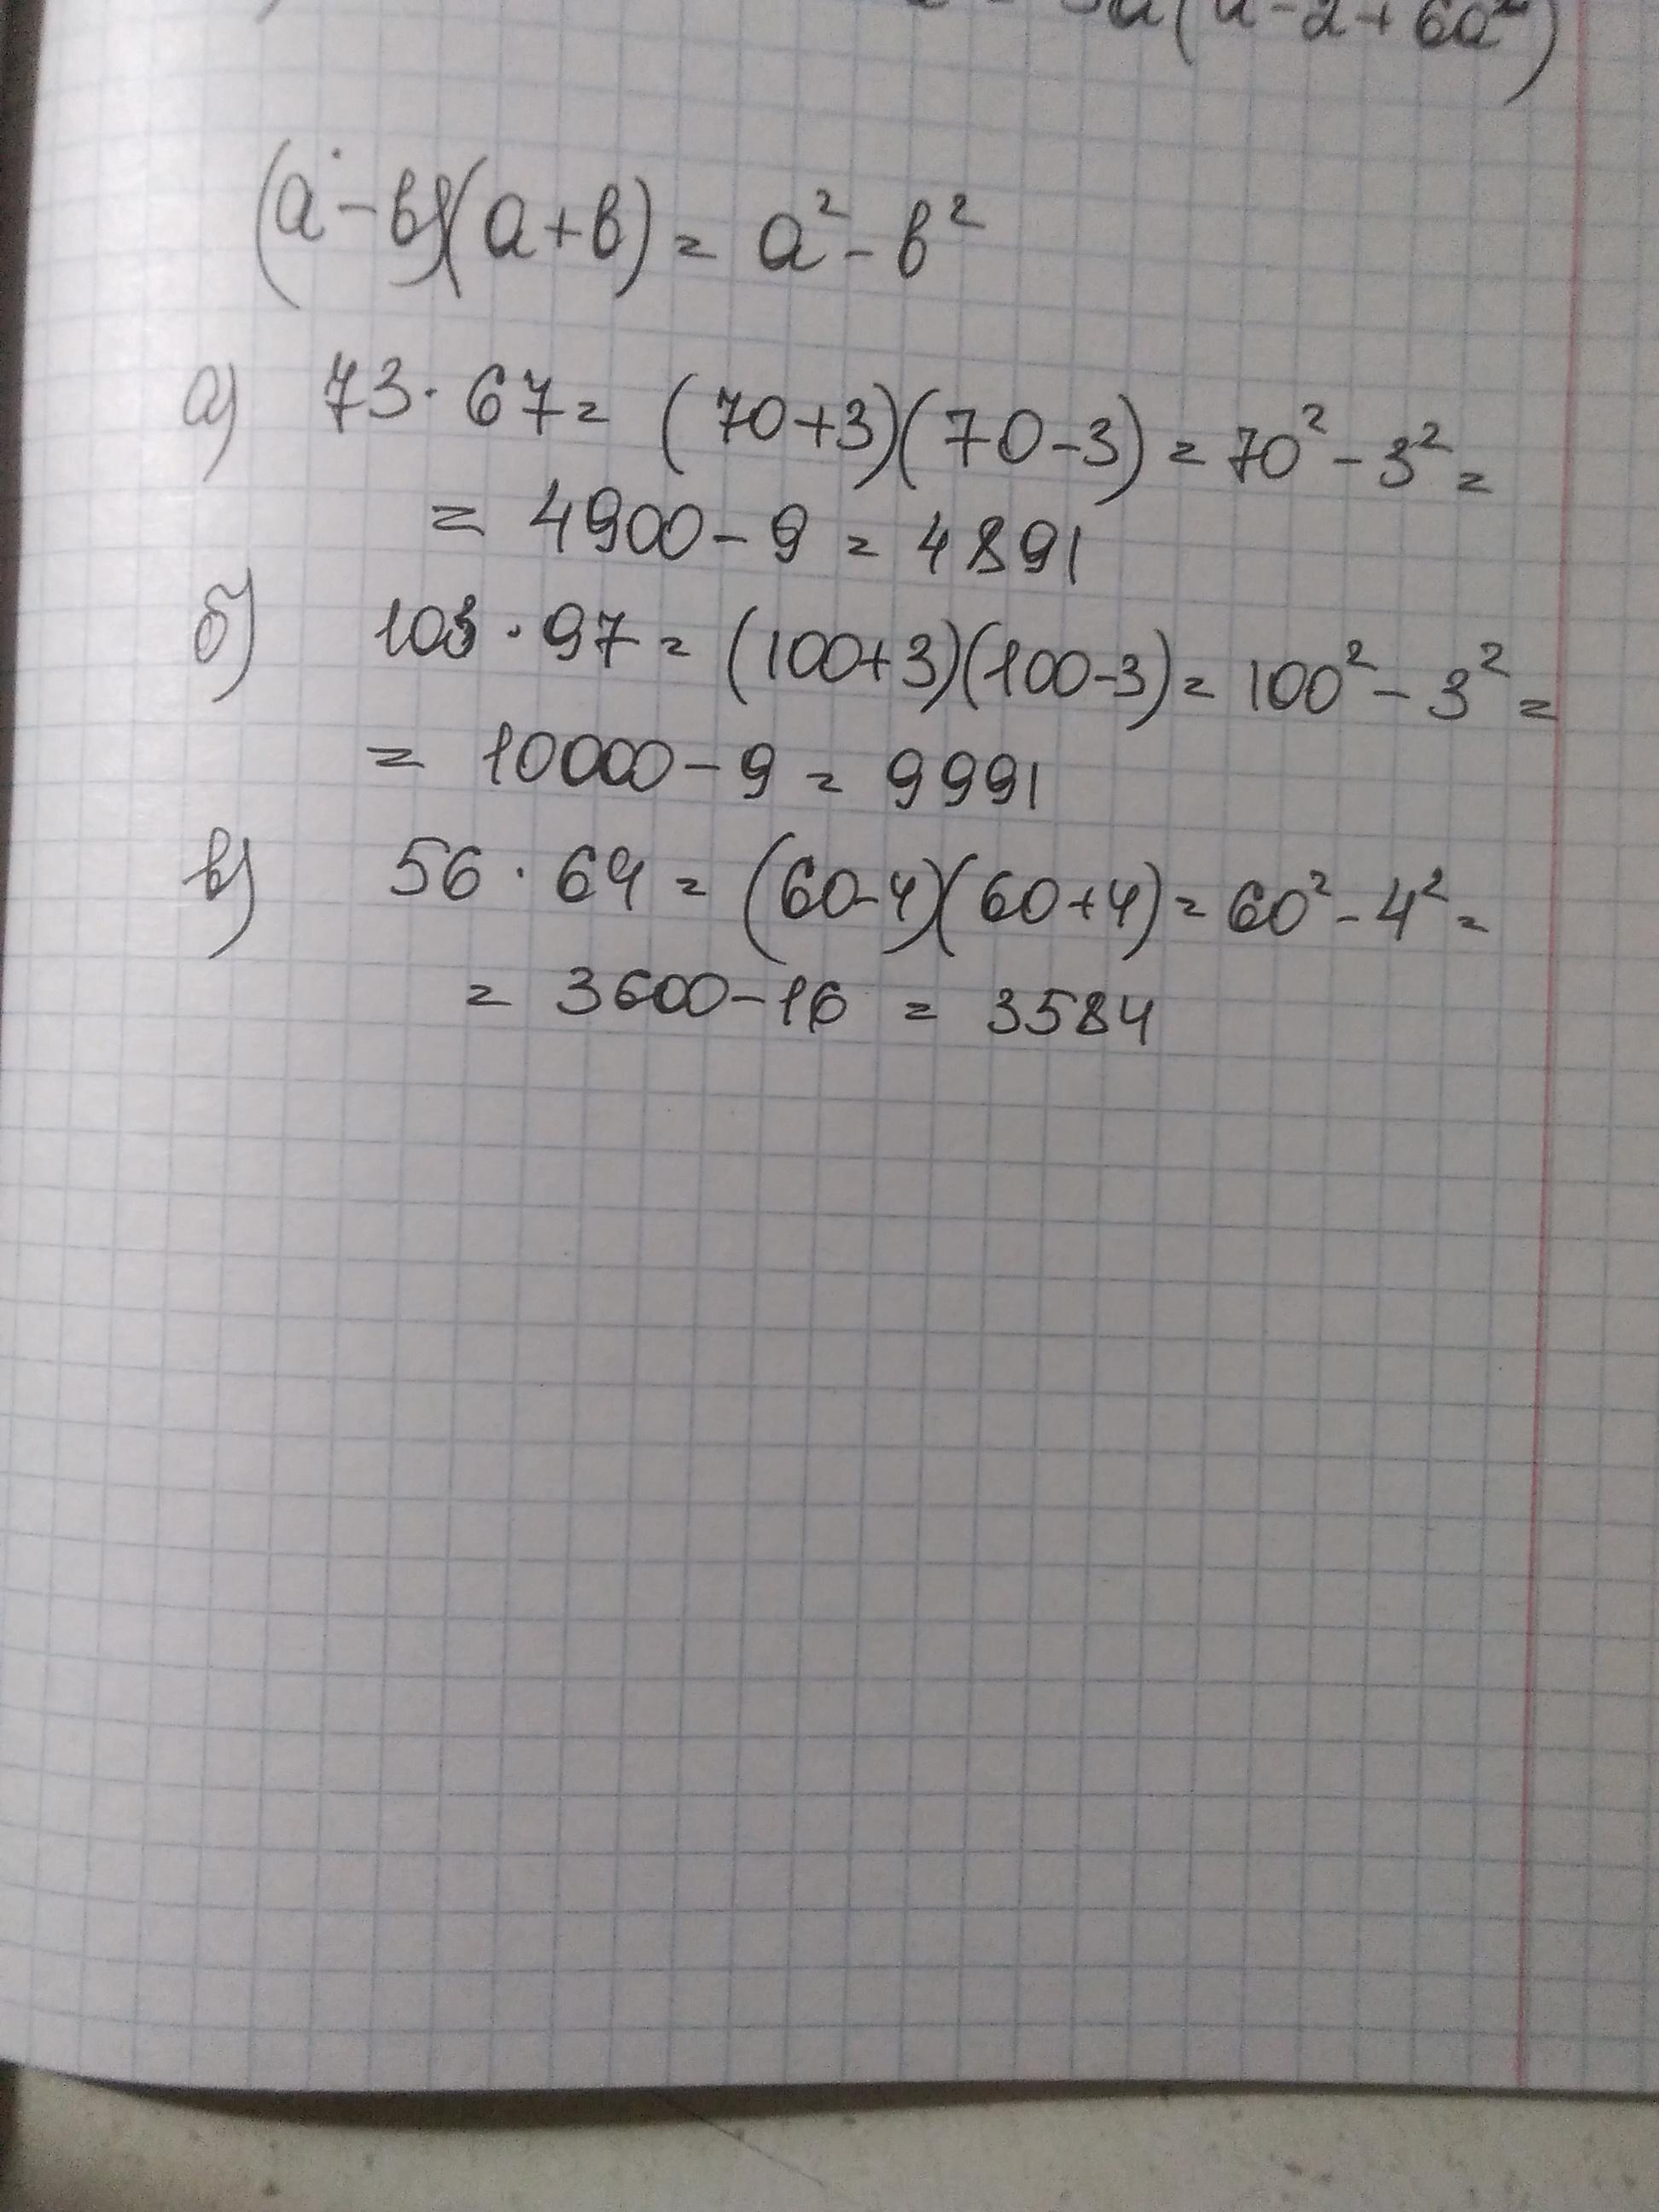 a(a-2+6a²)
(a-в)(a+в)=a²-в²
а) 73·67=(70+3)(70-3)=70²-3²=
=4900-9=4891
б) 103·97=(100+3)(100-3)=100²-3²=
=10000-9=9991
в) 56·64=(60-4)(60+4)=60²-4²=
=3600-16=3584